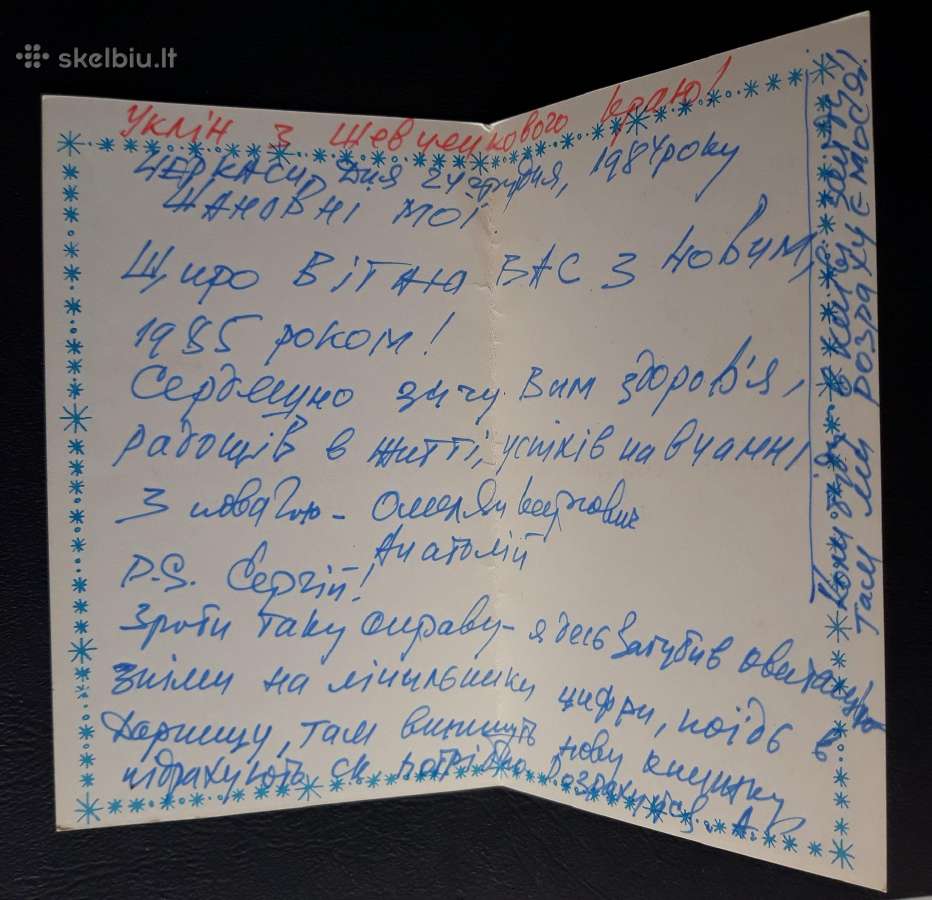 skelbiu.lt
Уклін з Шевченкового краю!
ЧЕРКАСИ, Дня 24 грудня, 1984 року
ШАНОВНІ МОЇ
Щиро ВІТАЮ ВАС З НОВИМ,
1985 роком!
Сердечно зичу Вам здоров'я,
радощів в житті, успіхів навчанні
З повагою –
Анатолій
P.S. Сергій!
Зроти таку справу – я десь загубив
Зніми на лічильнику цифри, поїдь в
Дарницю, там випишуть нову книжку
підрахують ск потрібно А.
Коли в Київ
там ми розрахуємося!